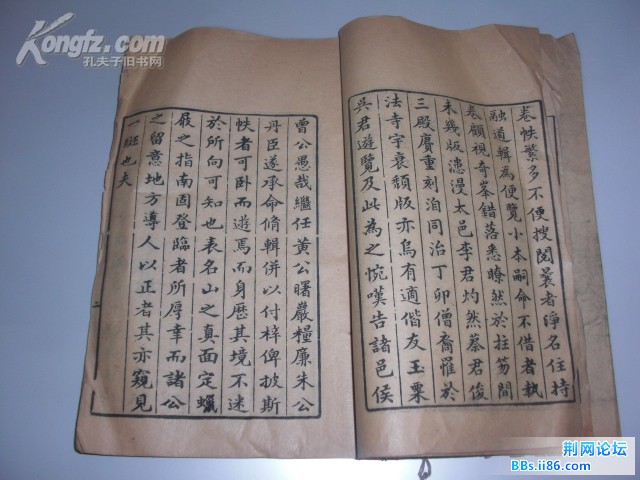 卷帙繁多不便搜閱曩者淨名住持
融道輯為便覽小本嗣命不借者執
卷顧視奇峯錯落悉瞭然於拄笏間
未幾版漶漫太邑李君灼然蔡君俊
三殿賡重刻洎同治丁卯僧裔罹於
法寺宇衰頹版亦烏有適偕友玉粟
吳君遊覽及此為之惋嘆告諸邑侯
曾公愚哉繼任黃公曙嚴糧廉朱公
丹臣遂承命脩輯併以付梓俾披斯
帙者可卧而遊焉而身歷其境不迷
於所向可知也表名山之真面定蠟
屐之指南固登臨者所厚幸而諸公
之留意地方導人以正者其亦窺見
一斑也夫
二
Kongfz.com
孔夫子旧书网
荆网论坛
BBs.ii86.com